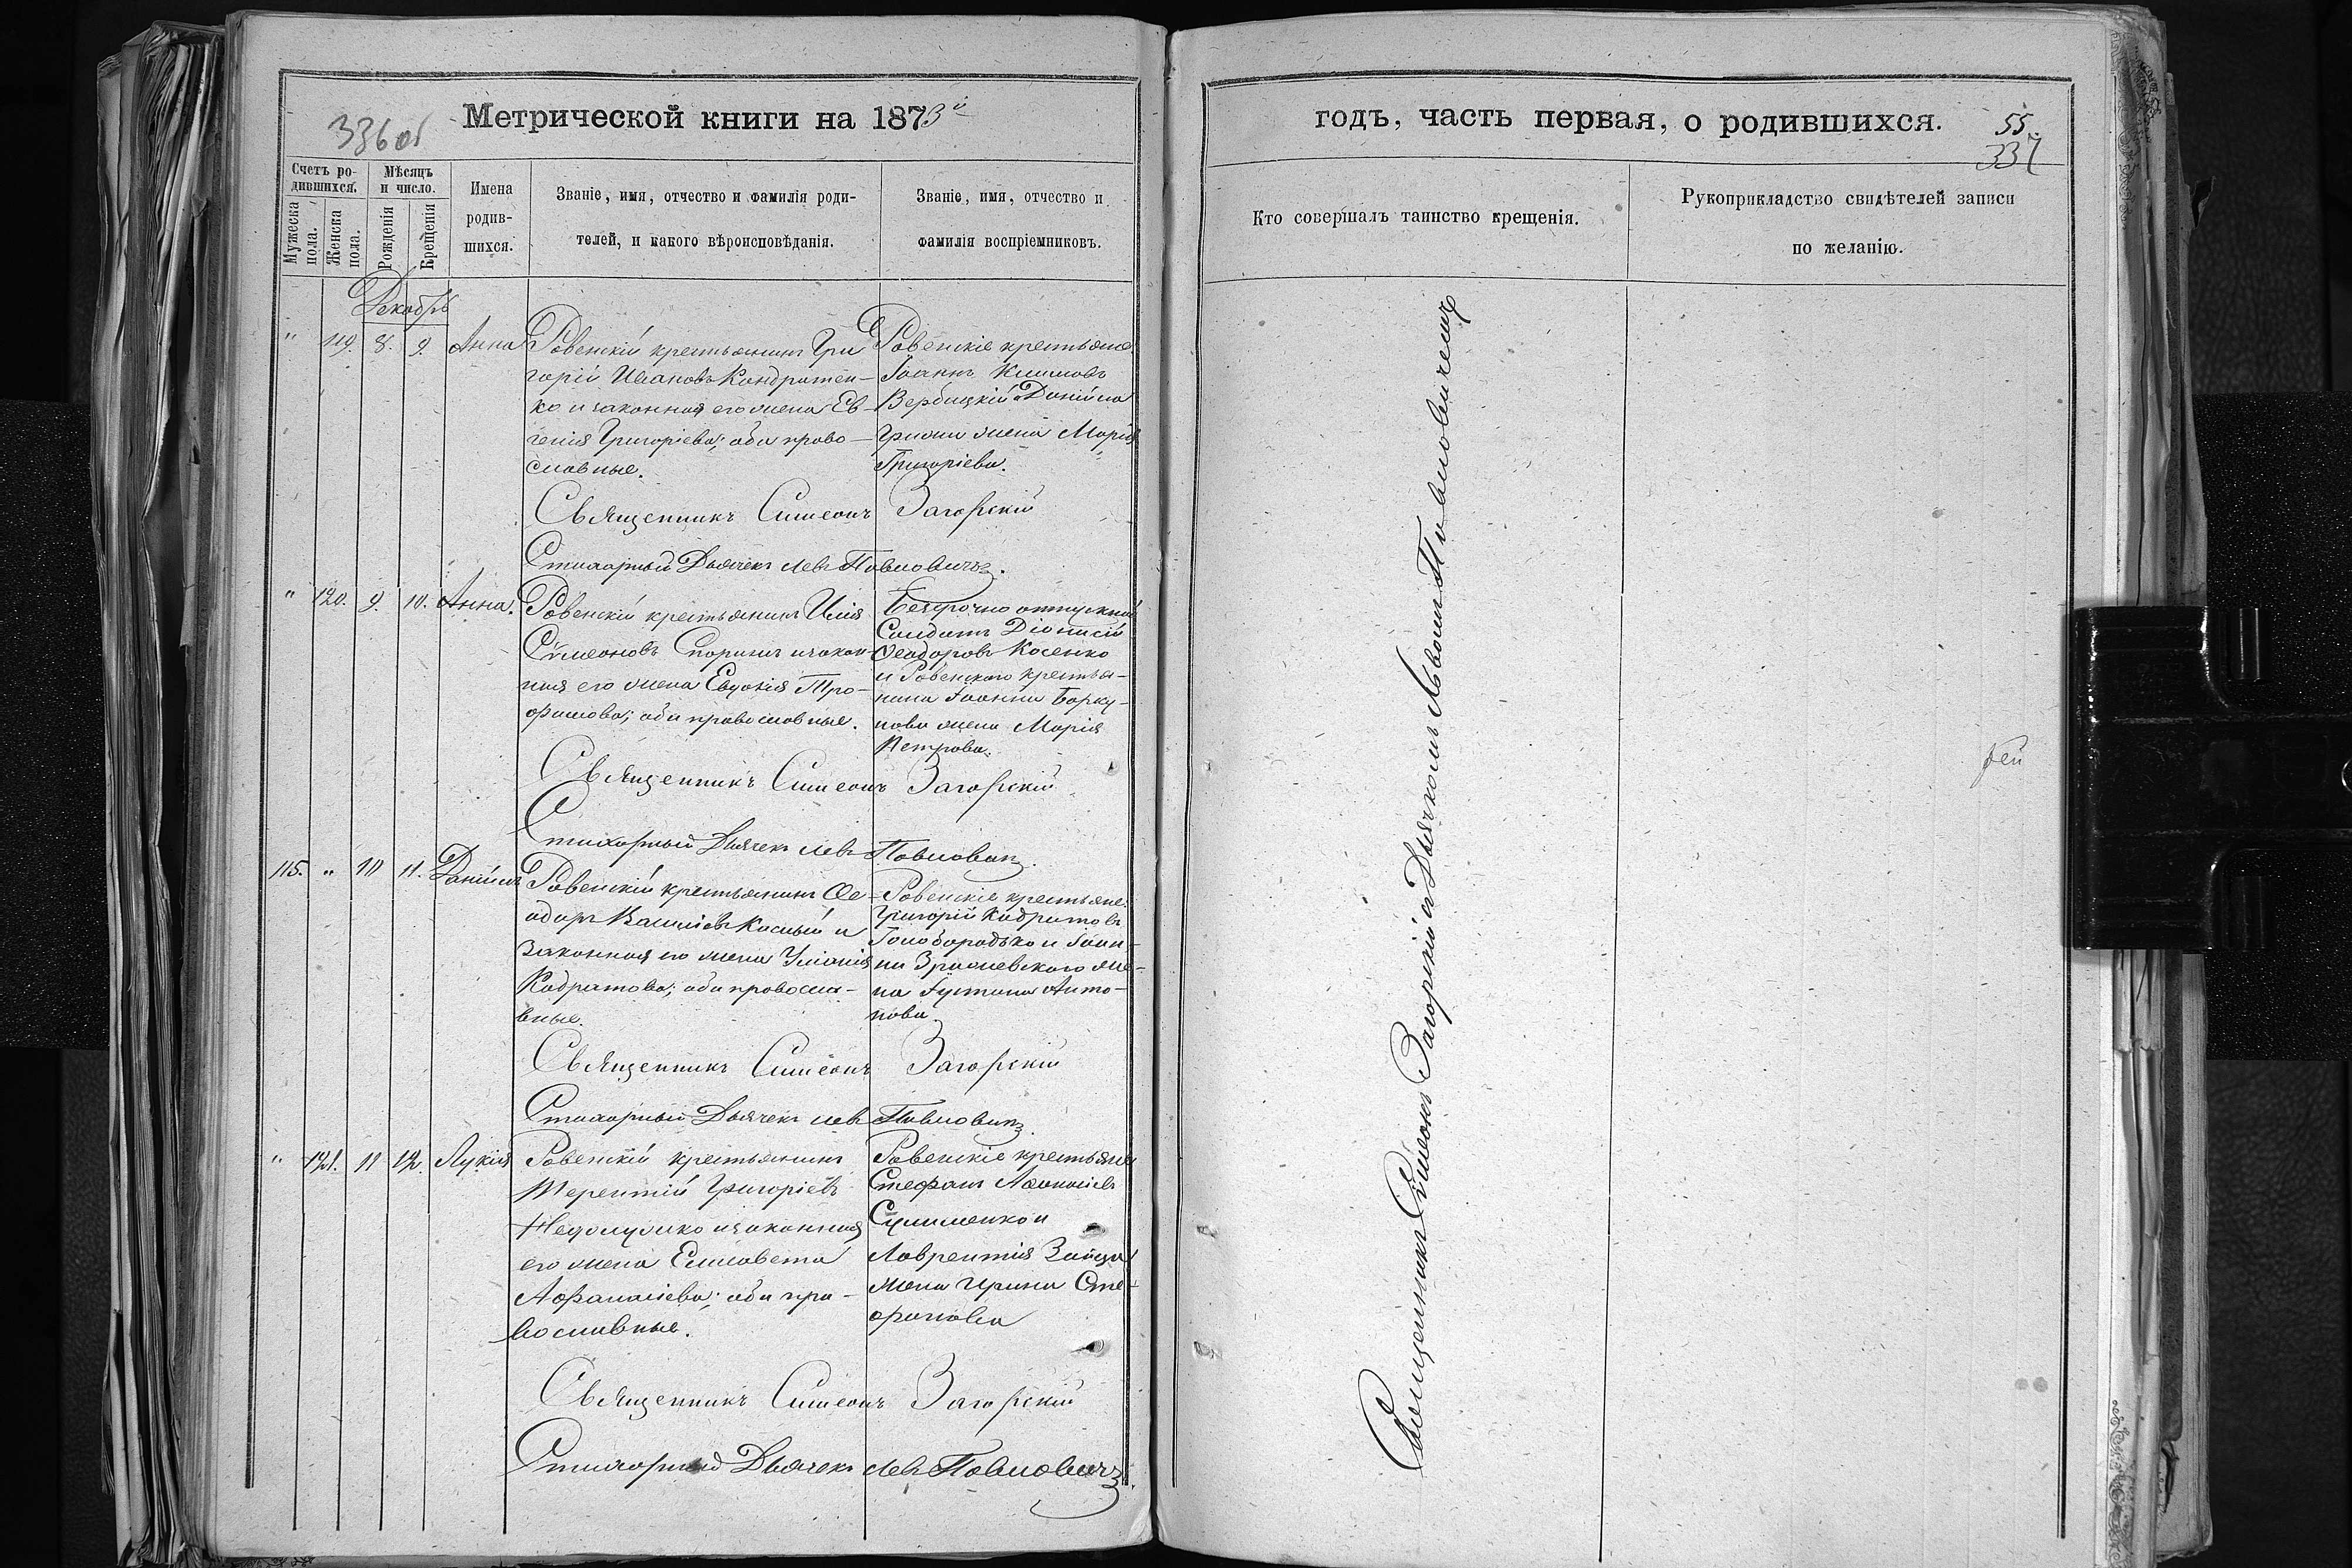 336 об
Метрической книги на 1873й
Счетъ ро-
дившихся.
Мужеска пола.
Женска пола.
Мѣсяцъ
и число.
Рожденія
Крещенія
Имена
родив-
шихся.
Званіе, имя, отчество и фамилія роди-
телей, и какого вѣроисповѣданія.
Званіе, имя, отчество и
фамилія воспріемниковъ.
Декабрь
" 119. 8. 9. Анна
Ровенскій крестьянинъ Гри
горій Ивановъ Кондратен-
ко и законная его жена Ев-
генія Григоріева; оба право-
славные.
Ровенскіе крестьяне
Іоаннъ Климовъ
Вербицкій и Даніила
жена Марія
Григоріева.
Священникъ Симеонъ Загорскій
Стихарный Дьячекъ Левъ Павловичъ.
" 120. 9. 10. Анна.
Ровенскій крестьянинъ Илія
Симеоновъ и закон-
ная его жена Евдокія Тро-
фимова; оба православные.
Безсрочно отпускной
Солдатъ Діонисій
Ѳеодоровъ Косенко
и Ровенскаго крестья-
нина Іоанна Борку-
нова жена Марія
Петрова.
Священникъ Симеонъ Загорскій
Стихарный Дьячекъ Левъ Павловичъ.
115. " 10 11. Даніилъ
Ровенскій крестьянинъ Ѳе-
одоръ Василіевъ Косый и
законная его жена Уліанія
Кодратова; оба правосла-
вные.
Ровенскіе крестьяне
Григорій Кодратовъ
Голобородько и Іоан-
на жe-
на Іустина Анто-
нова.
Священникъ Симеонъ Загорскій
Стихарный Дьячекъ Левъ Павловичъ.
" 121. 11 12. Лукія
Ровенскій крестьянинъ
Терентій Григоріевъ
и законная
его жена Елисавета
Афанасіева; оба пра-
вославные.
Ровенскіе крестьяне
Стефанъ Афанасіевъ
Сулименко и
Лаврентія Зайца
жена Ирина Сте-
фанова
Священникъ Симеонъ Загорскій
Стихарный Дьячекъ Левъ Павловичъ.
годъ, часть первая, о родившихся.
55.
337
Кто совершалъ таинство крещенія.
Рукоприкладство свидѣтелей записи
по желанію.
Священникъ Симеонъ Загорскій съ Дьячкомъ Львомъ Павловичемъ